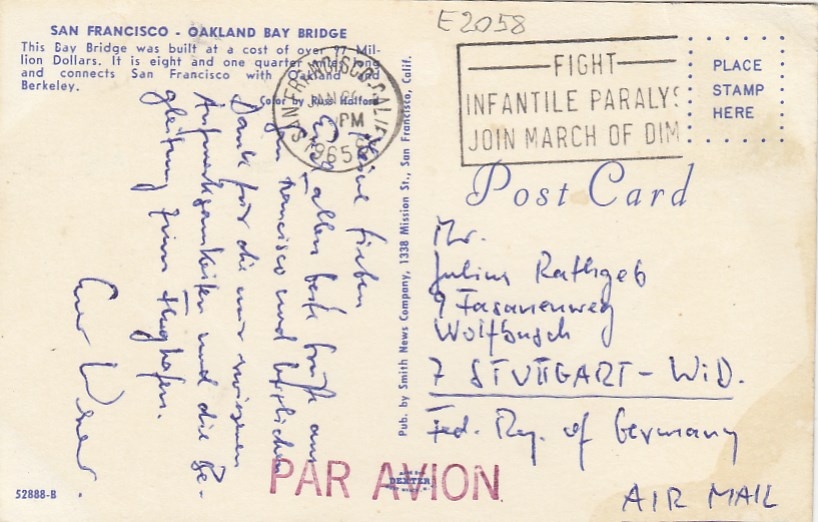 E2058
SAN FRANCISCO - OAKLAND BAY BRIDGE
This Bay Bridge was built at a cost of over 77 Mil-
lion Dollars. It is eight and one quarter miles long
and connects San Francisco with Oakland and
Berkeley.
Color by Mike Roberts
SAN FRANCISCO, CALIF.
PM
1965
FIGHT
INFANTILE PARALYS
JOIN MARCH OF DIM
PLACE
STAMP
HERE
Post Card
Meine Lieben
Euch allen beste Grüße aus
San Francisco und herzlichen
Dank für die mir erwiesenen
Aufmerksamkeiten und die Be-
gleitung zum Flughafen.
Euer
Pub. by Smith News Company, 1338 Mission St., San Francisco, Calif.
Mr.
Julius Rathgeb
9 Fasanenweg
Wolfbusch
7 STUTTGART - WiD.
Fed. Rep. of Germany
AIR MAIL
PAR AVION
DEXTER
52888-B